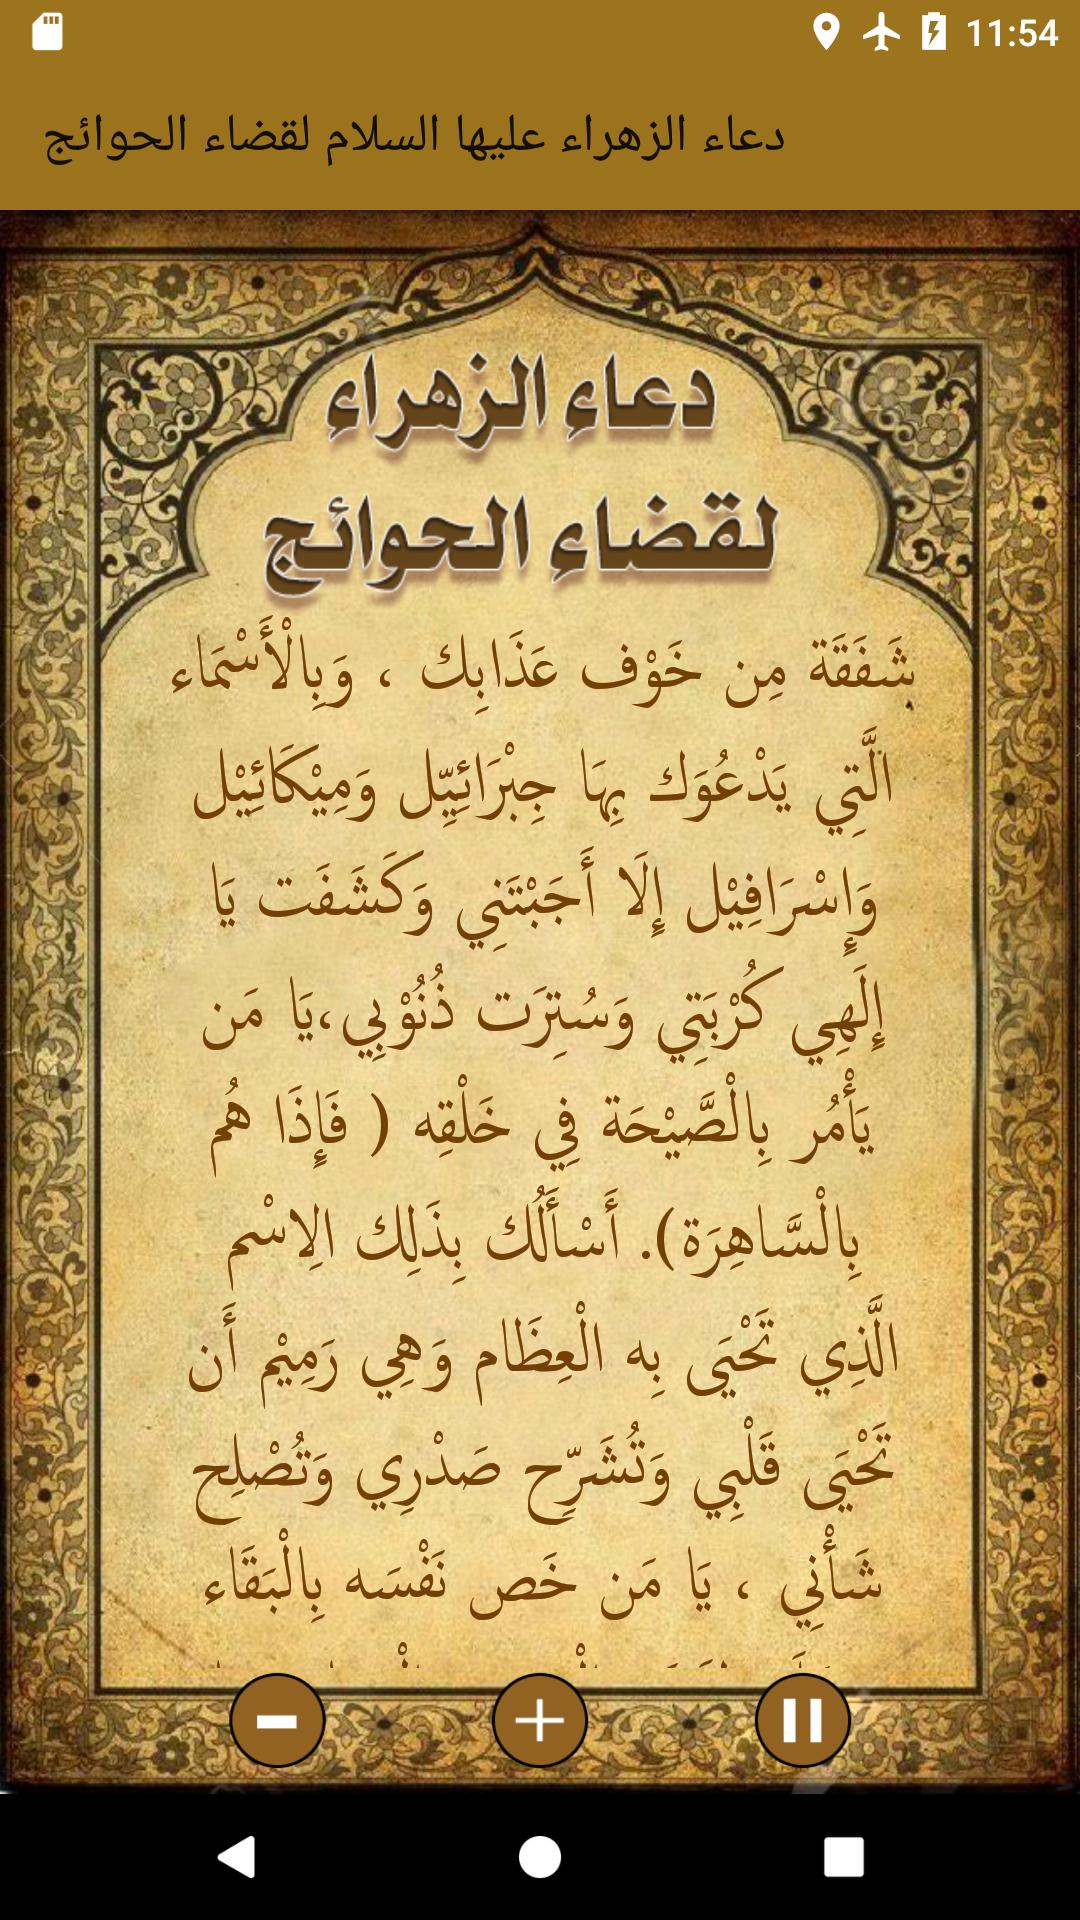 11:54
دعاء الزهراء عليها السلام لقضاء الحوائج
دعاء الزهراء
لقضاء الحوائج
شَفَقَة مِن خَوْف عَذَابِك ، وَبِالْأَسْمَاء
الَّتِي يَدْعُوَك بِهَا جِبْرَائِيِّل وَمِيْكَائِيْل
وَإِسْرَافِيْل إِلَا أَجَبْتَنِي وَكَشَفَت يَا
إِلَهِي كُرْبَتِي وَسُتِرَت ذُنُوْبِي،يَا مَن
يَأْمُر بِالْصَّيْحَة فِي خَلْقِه ( فَإِذَا هُم
بِالْسَّاهِرَة). أَسْأَلُك بِذَلِك الِاسْم
الَّذِي تَحْيَى بِه الْعِظَام وَهِي رَمِيْم أَن
تَحْيَى قَلْبِي وَتُشَرِّح صَدْرِي وَتُصْلِح
شَأْنِي ، يَا مَن خَص نَفْسَه بِالْبَقَاء